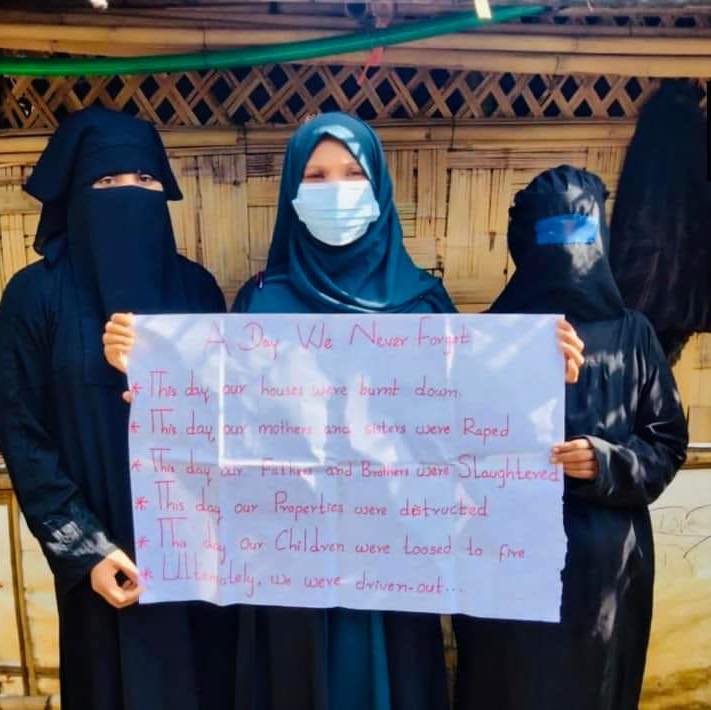 A Day We Never Forget
* This day our houses were burnt down.
* This day our mothers and sisters were Raped
* This day our Fathers and Brothers were Slaughtered
* This day our Properties were destructed
* This day our Children were toosed to fire
* Ultemately, we were driven-out...